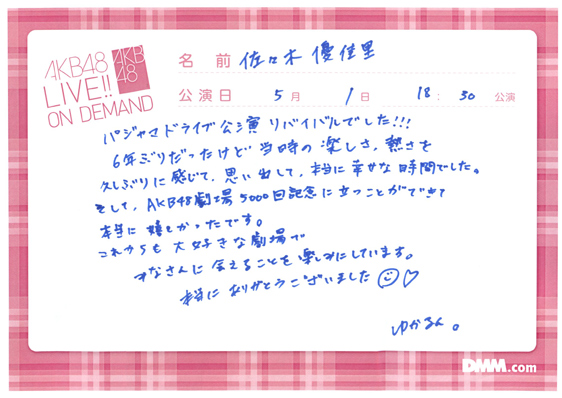 AKB48
LIVE!!
ON DEMAND
AKB
48
名 前 佐々木 優佳里
公演日 5月 1日 18:30 公演
パジャマドライブ公演 リバイバルでした!!!
6年ぶりだったけど当時の楽しさ、熱さを
久しぶりに感じて、思い出して、本当に幸せな時間でした。
そして、AKB48劇場5000回記念に立つことができて
本当に嬉しかったです。
これからも大好きな劇場で
みなさんに会えることを楽しみにしています。
本当にありがとうございました☺♡
ゆかるん。
DMM.com